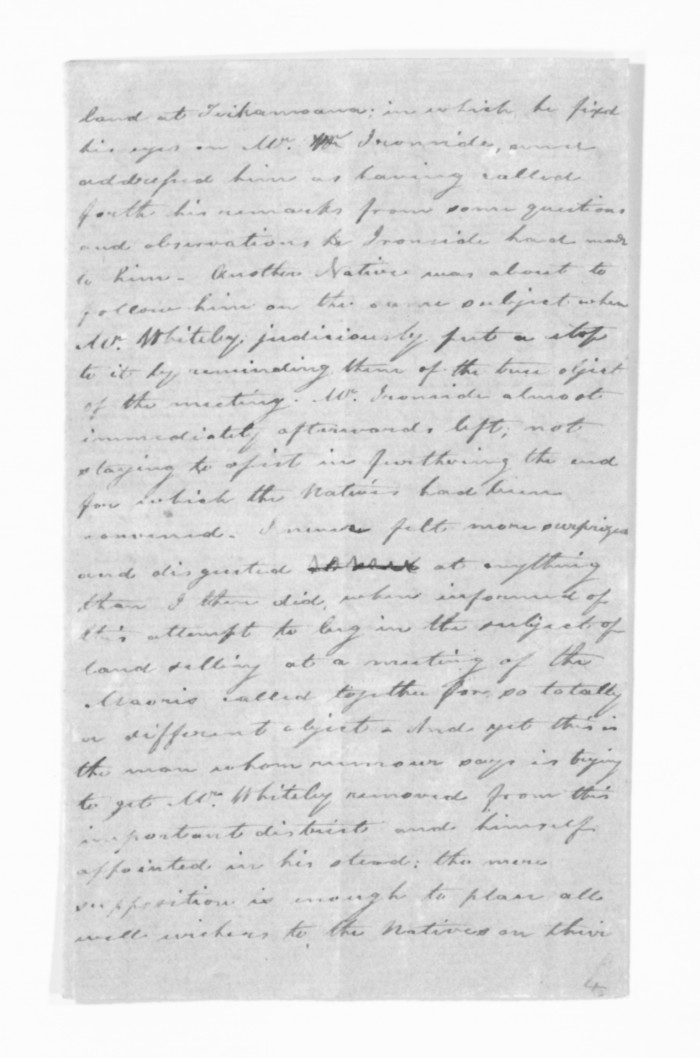 land at Tvikamoana; in which he fixd
his eyes on Mr. Ironside, and
addressed him as having called
forth his remarks from some questions
and observations he Ironside had made
to him - Another Native was about to
follow him on the same subject when
Mr. Whiteley, judiciously put a stop
to it by reminding them of the true object
of the meeting. Mr. Ironside almost
immediately afterwards left; not
staying to assist in furthering the end
for which the Natives had been
convened. I never felt more surprized
and disgusted at anything
than I then did, when informed of
this attempt to lug in the subject of
land selling at a meeting of the
Maoris called together for so totally
a different object. And yet this is
the man whom rumour says is trying
to get Mr. Whiteley removed from this
important district and himself
appointed in his stead; the mere
supposition is enough to place all
well wishers to the Natives on their
4